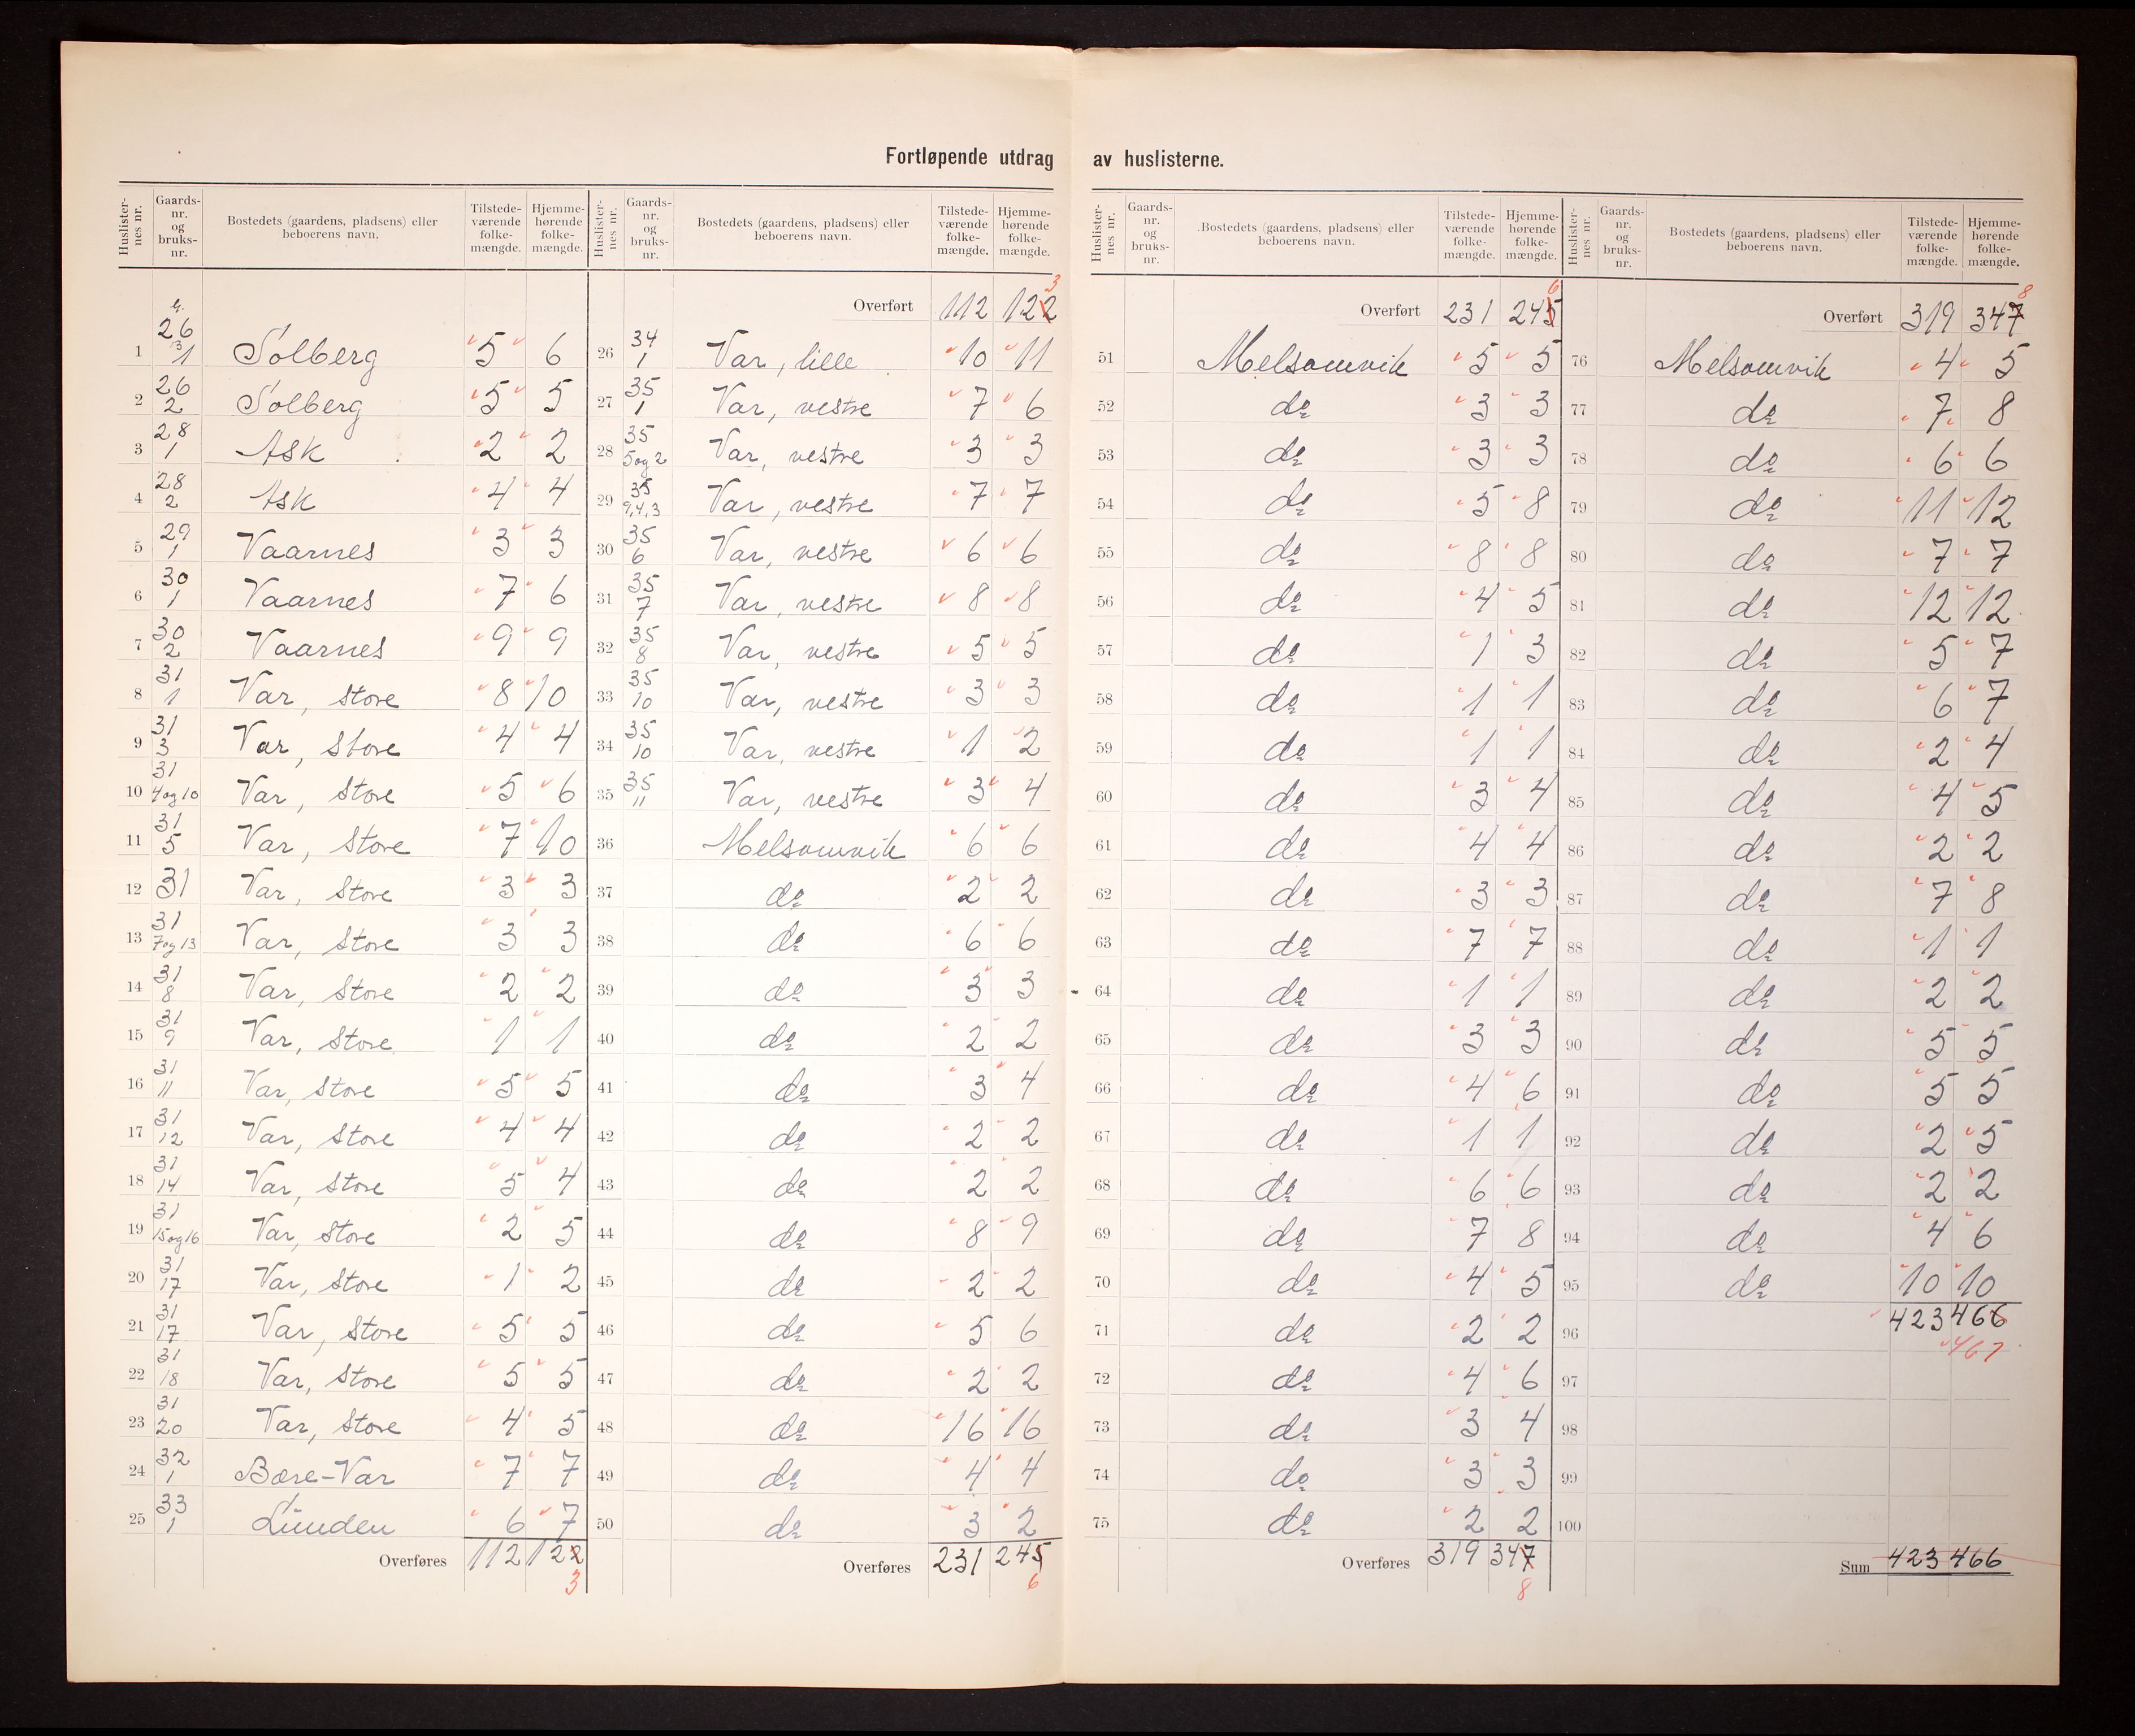 Fortløpende utdrag av huslisterne.
Huslisternes nr. | Gaards-nr. og bruks-nr. | Bostedets (gaardens, pladsens) eller beboerens navn. | Tilstedeværende folkemængde. | Hjemmehørende folkemængde.
g.
1 26 3 1 Solberg 5 6
2 26 2 Solberg 5 5
3 28 1 Ask 2 2
4 28 2 Ask 4 4
5 29 1 Vaarnes 3 3
6 30 1 Vaarnes 7 6
7 30 2 Vaarnes 9 9
8 31 1 Var, store 8 10
9 31 3 Var, store 4 4
10 31 4 og 10 Var, store 5 6
11 31 5 Var, store 7 10
12 31 Var, store 3 3
13 31 7 og 13 Var, store 3 3
14 31 8 Var, store 2 2
15 31 9 Var, store 1 1
16 31 11 Var, store 5 5
17 31 12 Var, store 4 4
18 31 14 Var, store 5 4
19 31 15 og 16 Var, store 2 5
20 31 17 Var, store 1 2
21 31 17 Var, store 5 5
22 31 18 Var, store 5 5
23 31 20 Var, store 4 5
24 32 1 Børe-Var 7 7
25 33 1 Lunden 6 7
Overføres 112 122 3
Huslisternes nr. | Gaards-nr. og bruks-nr. | Bostedets (gaardens, pladsens) eller beboerens navn. | Tilstedeværende folkemængde. | Hjemmehørende folkemængde.
Overført 112 122 3
26 34 1 Var, lille 10 11
27 35 1 Var, vestre 7 6
28 35 5 og 2 Var, vestre 3 3
29 35 9,4,3 Var, vestre 7 7
30 35 6 Var, vestre 6 6
31 35 7 Var, vestre 8 8
32 35 8 Var, vestre 5 5
33 35 10 Var, vestre 3 3
34 35 10 Var, vestre 1 2
35 35 11 Var, vestre 3 4
36 Melsomvik 6 6
37 do 2 2
38 do 6 6
39 do 3 3
40 do 2 2
41 do 3 4
42 do 2 2
43 do 2 2
44 do 8 9
45 do 2 2
46 do 5 6
47 do 2 2
48 do 16 16
49 do 4 4
50 do 3 2
Overføres 231 245 6
Huslisternes nr. | Gaards-nr. og bruks-nr. | Bostedets (gaardens, pladsens) eller beboerens navn. | Tilstedeværende folkemængde. | Hjemmehørende folkemængde.
Overført 231 245 6
51 Melsomvik 5 5
52 do 3 3
53 do 3 3
54 do 5 8
55 do 8 8
56 do 4 5
57 do 1 3
58 do 1 1
59 do 1 1
60 do 3 4
61 do 4 4
62 do 3 3
63 do 7 7
64 do 1 1
65 do 3 3
66 do 4 6
67 do 1 1
68 do 6 6
69 do 7 8
70 do 4 5
71 do 2 2
72 do 4 6
73 do 3 4
74 do 3 3
75 do 2 2
Overføres 319 347 8
Huslisternes nr. | Gaards-nr. og bruks-nr. | Bostedets (gaardens, pladsens) eller beboerens navn. | Tilstedeværende folkemængde. | Hjemmehørende folkemængde.
Overført 319 347 8
76 Melsomvik 4 5
77 do 7 8
78 do 6 6
79 do 11 12
80 do 7 7
81 do 12 12
82 do 5 7
83 do 6 7
84 do 2 4
85 do 4 5
86 do 2 2
87 do 7 8
88 do 1 1
89 do 2 2
90 do 5 5
91 do 5 5
92 do 2 5
93 do 2 2
94 do 4 6
95 do 10 10
96 423 466
467
97
98
99
100
Sum 423 466